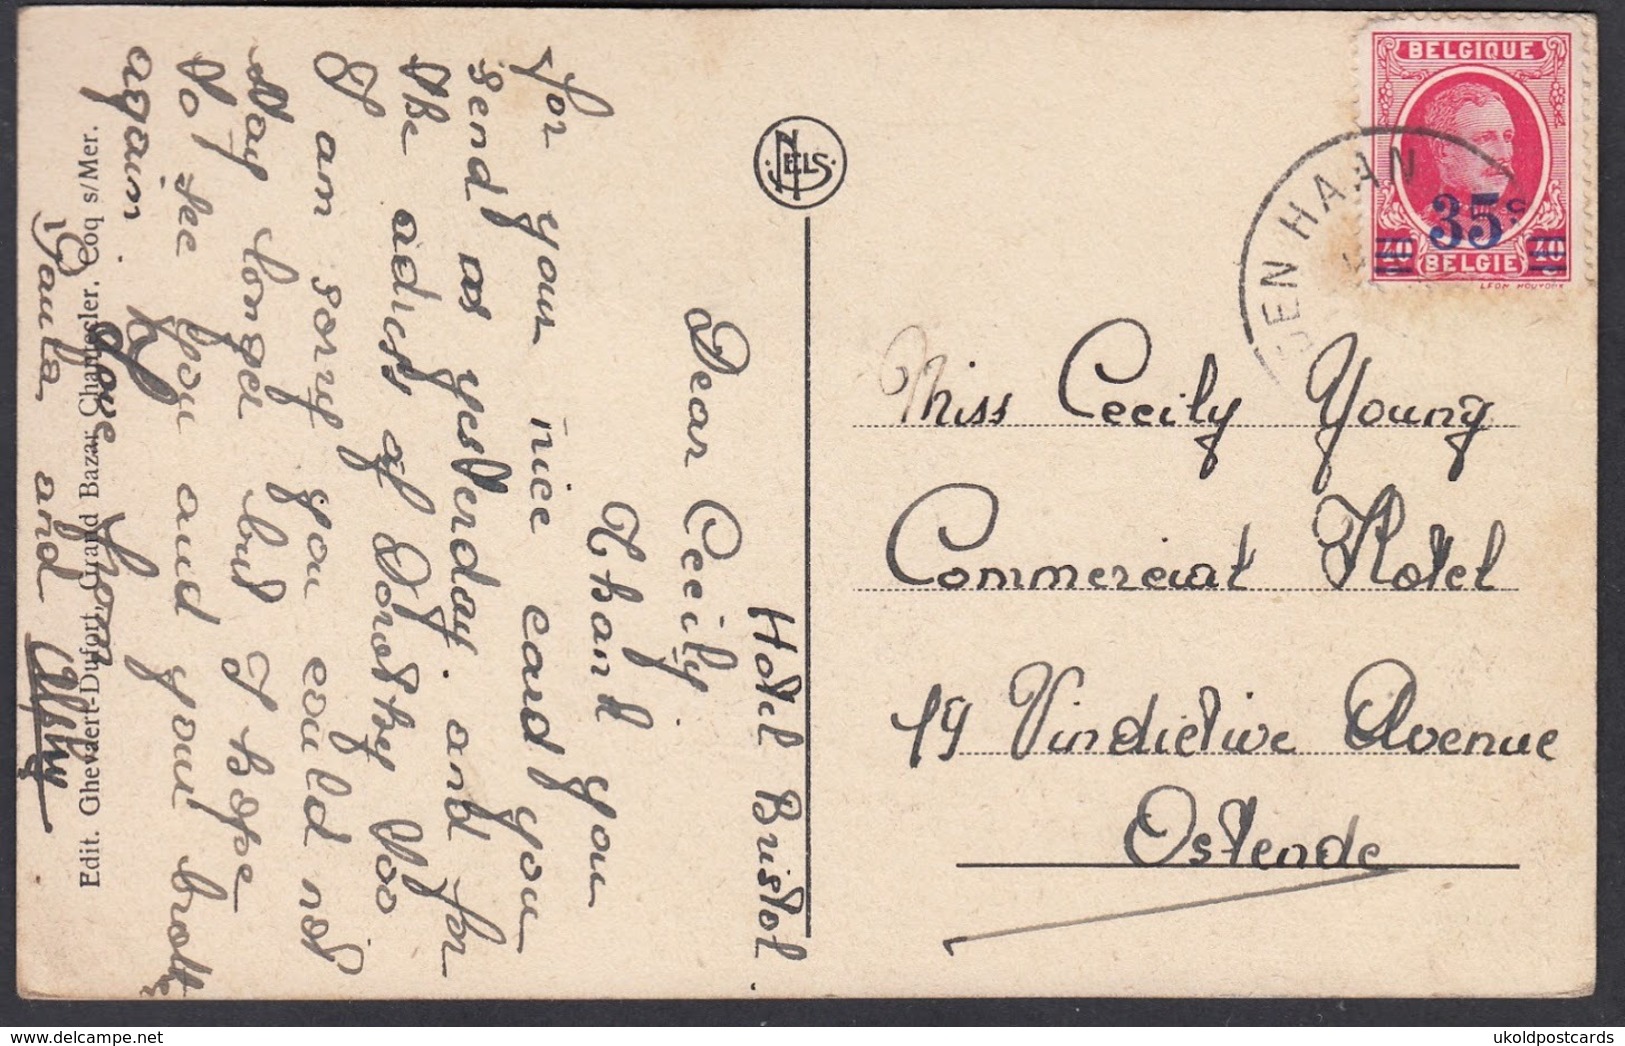 Hotel Bristol
Dear Cecily
Thank you
for your nice card you
send us yesterday. and for
the adress of Dorothey too
I am sorry you could not
stay longer but I hope
to see you and your brother
again by
Love from
Paula and
Edit. Ghevaert-Dufort, Grand Bazar Chantecler. Coq s/Mer.
NELS
BELGIQUE
35c
40 40
BELGIE
DEN HAAN
Miss Cecily Young
Commercial Hotel
19 Vindictive Avenue
Ostende
ukoldpostcards.com